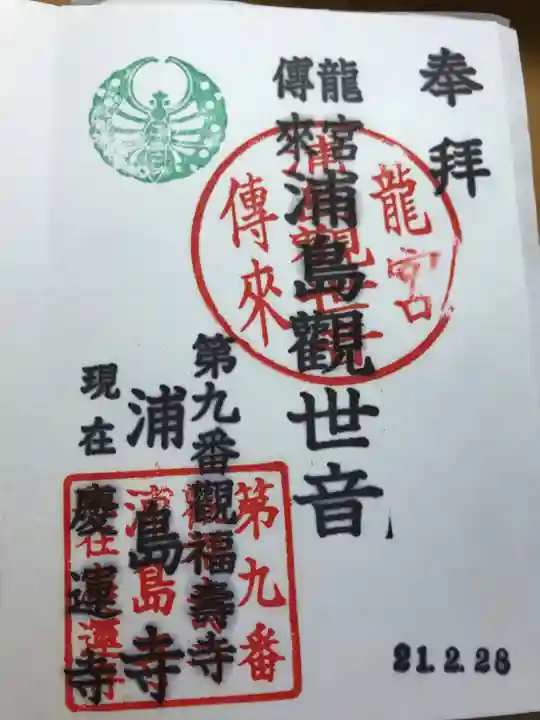 奉拜
龍宮
傳來
浦島觀世音
第九番觀福壽寺
浦島寺
現在慶運寺
龍宮
傳來
第九番
浦島
21.2.28